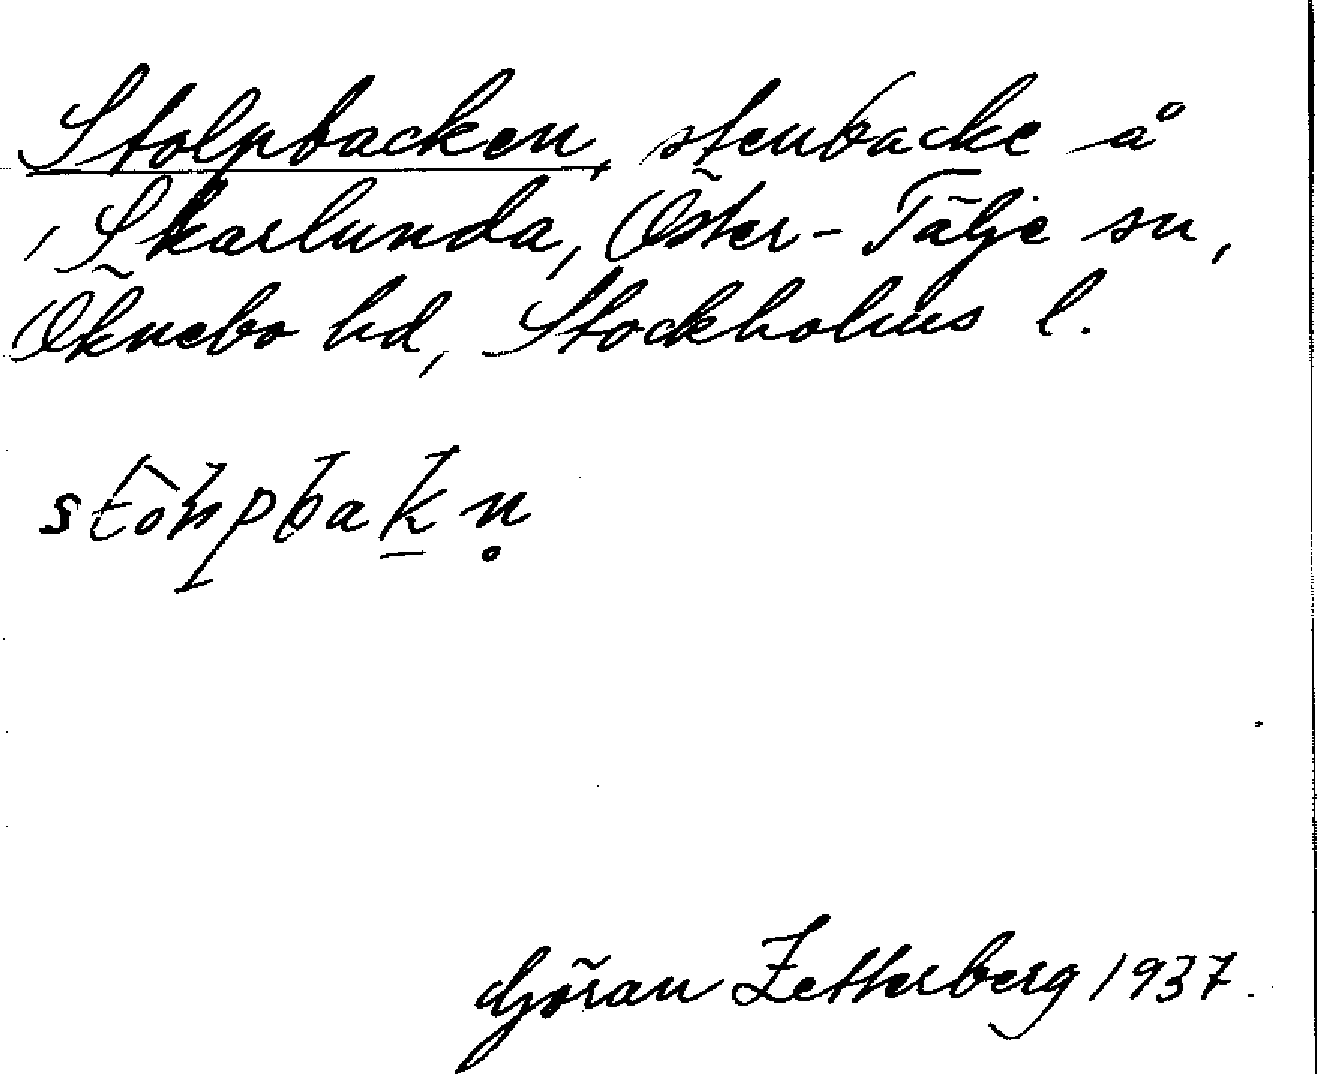 Stolpbacken, stenbacke å
, Skarlunda, Öster-Tälje sn,
Öknebo hd, Stockholms l.
Göran Zetterberg 1937.